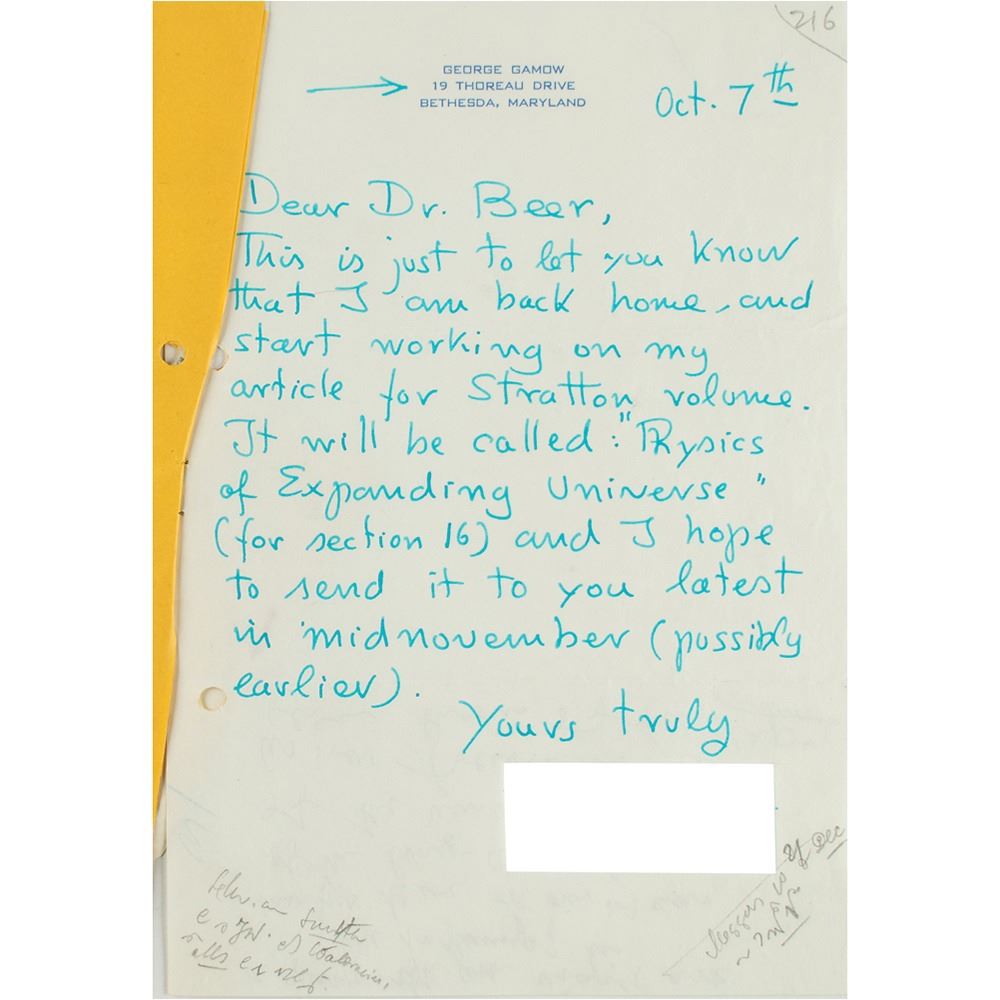 216
GEORGE GAMOW
19 THOREAU DRIVE
BETHESDA, MARYLAND
Oct. 7th
Dear Dr. Beer,
This is just to let you know
that I am back home, and
start working on my
article for Stratton volume.
It will be called: "Physics
of Expanding Universe"
(for section 16) and I hope
to send it to you latest
in midnovember (possibly
earlier).
Yours truly